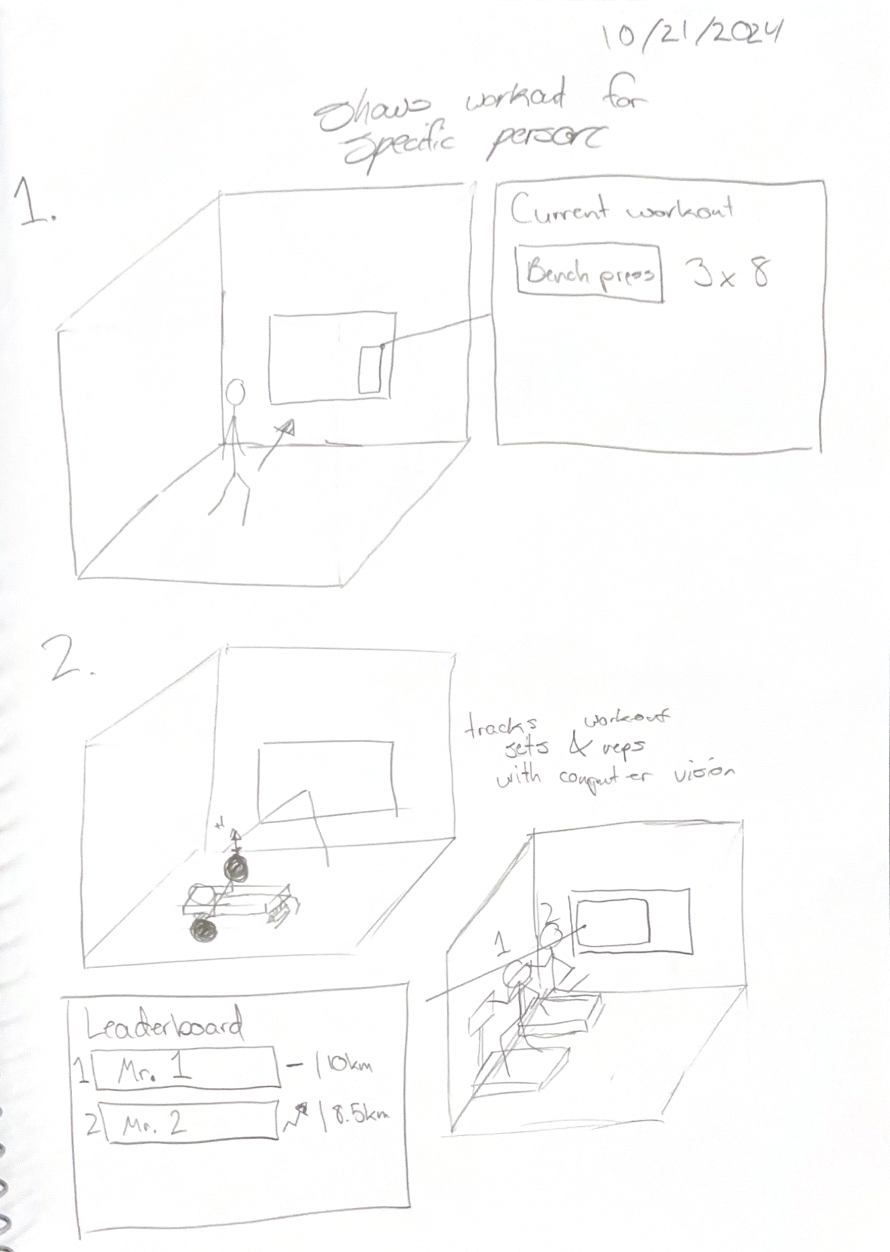 10/21/2024
Shows workout for
specific person
1.
Current workout
Bench press 3 x 8
2.
tracks workout
sets & reps
with computer vision
+1
2
1
Leaderboard
1 Mr. 1 – | 10km
2 Mr. 2 | 8.5km